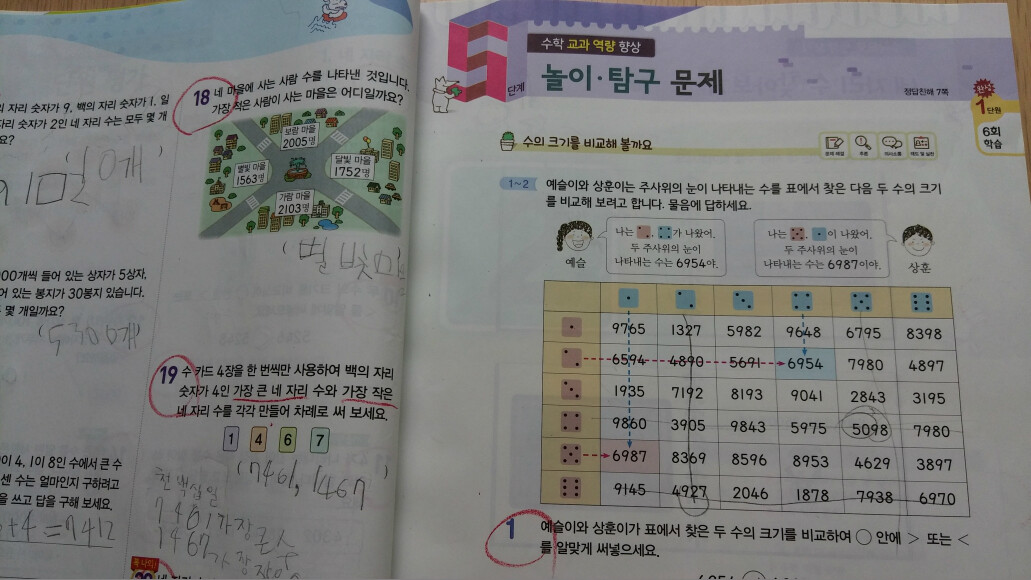 의 자리 숫자가 9, 백의 자리 숫자가 1, 일
자리 숫자가 2인 네 자리 수는 모두 몇 개
요?
000개씩 들어 있는 상자가 5상자,
어 있는 봉지가 30봉지 있습니다.
몇 개일까요?
5300개
이 4, 1이 8인 수에서 큰 수
센 수는 얼마인지 구하려고
을 쓰고 답을 구해 보세요.
+4=7412
18 네 마을에 사는 사람 수를 나타낸 것입니다.
가장 적은 사람이 사는 마을은 어디일까요?
보람 마을
2005명
별빛 마을
1563명
달빛 마을
1752명
가람 마을
2103명
19 수 카드 4장을 한 번씩만 사용하여 백의 자리
숫자가 4인 가장 큰 네 자리 수와 가장 작은
네 자리 수를 각각 만들어 차례로 써 보세요.
1 4 6 7
(7461, 1467
천백십일
가장큰수
1467가장작은
5
단계
수학 교과 역량 향상
놀이·탐구 문제
정답친해 7쪽
완성
1단원
6회
학습
수의 크기를 비교해 볼까요
1~2 예슬이와 상훈이는 주사위의 눈이 나타내는 수를 표에서 찾은 다음 두 수의 크기
를 비교해 보려고 합니다. 물음에 답하세요.
예슬
나는 , 가 나왔어.
두 주사위의 눈이
나타내는 수는 6954야.
나는 , 이 나왔어.
두 주사위의 눈이
나타내는 수는 6987이야.
상훈
9765 1327 5982 9648 6795 8398
6594 4890 5691 6954 7980 4897
1935 7192 8193 9041 2843 3195
9860 3905 9843 5975 5098 7980
6987 8369 8596 8953 4629 3897
9145 4927 2046 1878 7938 6970
1 예슬이와 상훈이가 표에서 찾은 두 수의 크기를 비교하여 ○ 안에 > 또는 <
를 알맞게 써넣으세요.